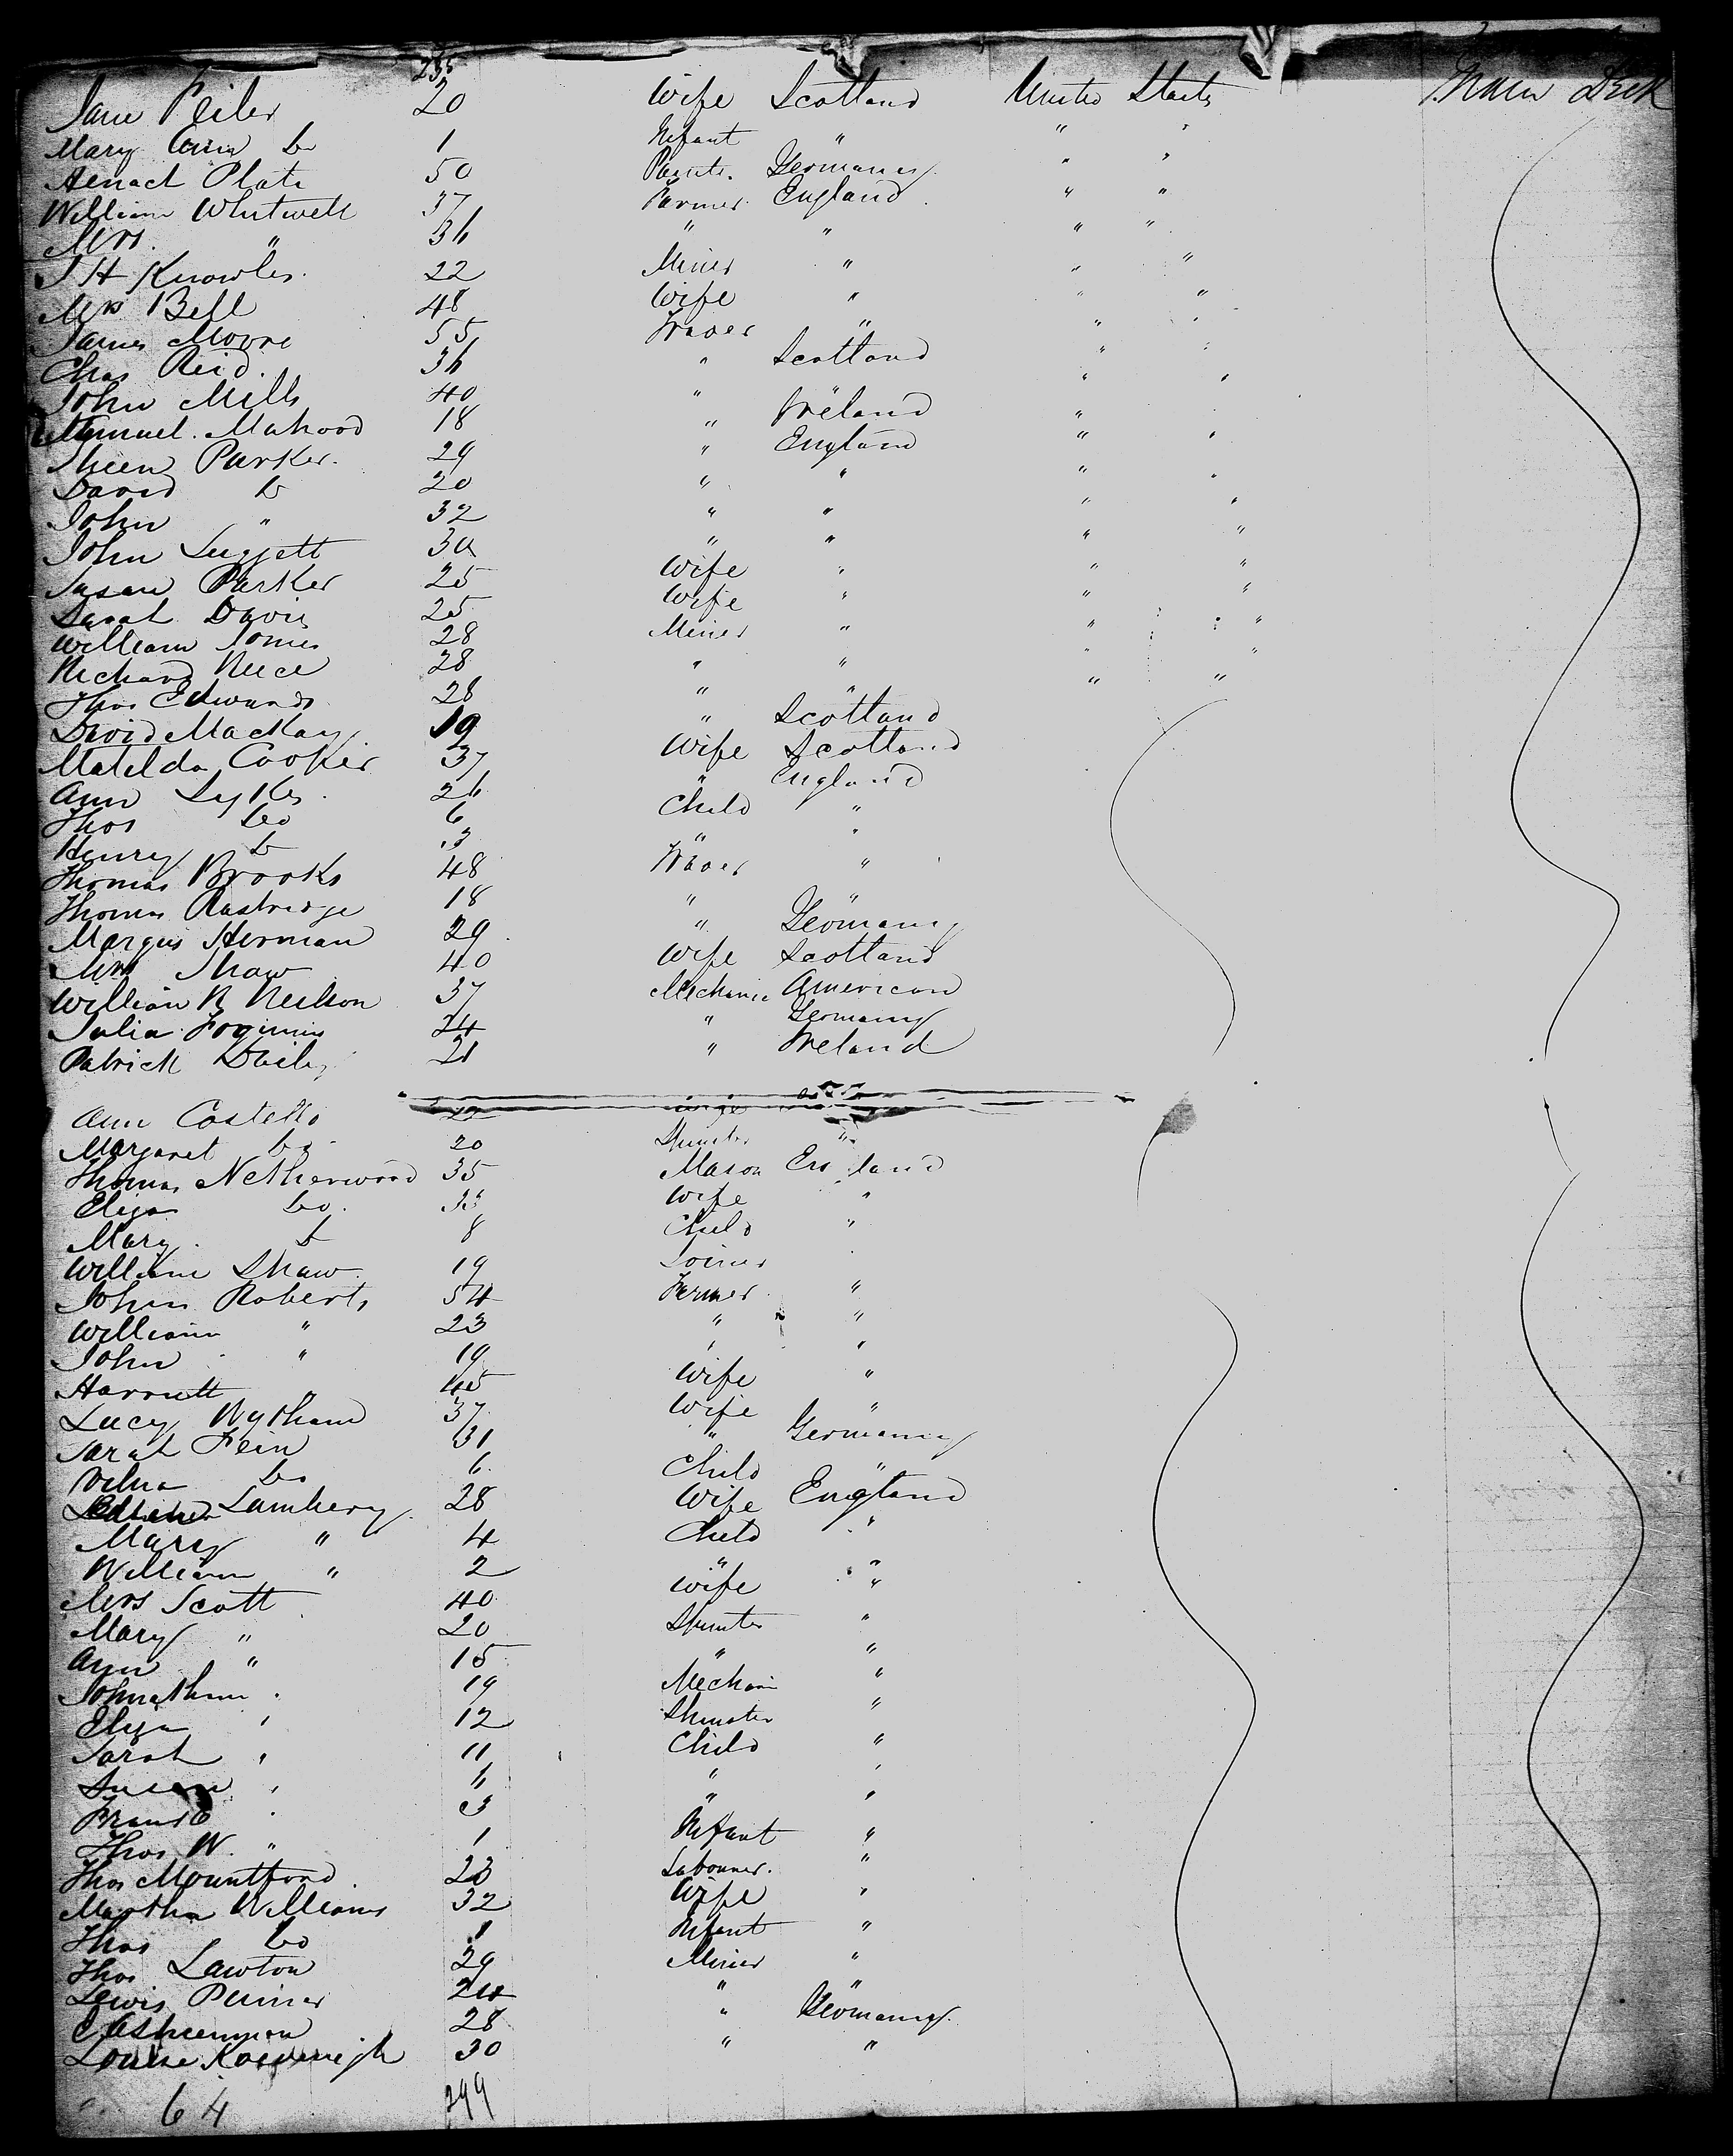 235
Jane Peiler 20 Wife Scotland United States Main Deck
Mary Ann Do 1 Infant " " "
Plate 50 Germany " "
William Whitwell 37 Farmer England " "
Mrs " 36 " " " "
J H Knowles 22 Miner " " "
Mrs Bell 48 Wife " " "
James Moore 55 " " "
Chas Reid 36 " Scotland " "
John Mills 40 " " " "
Mahood 18 " Ireland "
Parker 29 " England " "
David Do 20 " " " "
John " 32 " " " "
John Suggett 30 " " " "
Susan Parker 25 Wife " " "
Sarah Davis 25 Wife " " "
William Jones 28 Miner " " "
Richard Reece 28 " " " "
Thos Edwards 28 " " " "
David MacKay 19 " Scotland
Matilda Cooper 37 Wife Scotland
Ann Sykes 26 " England
Thos Do 6 Child "
Henry Do 3 " "
Thomas Brooks 48 "
Thomas Rastredge 18 " "
Margus Herman 29 " Germany
Mrs Shaw 40 Wife Scotland
William R Neilson 37 Mechanic American
Julia 24 " Germany
Patrick Daily 21 " Ireland
Ann Costello 22
Margaret Do 20 Spinster "
Thomas Netherwood 35 Mason England
Eliza Do 33 Wife "
Mary Do 8 Child "
William Shaw 19 Joiner
John Roberts 54 Farmer "
William " 23 " "
John " 19 " "
Harriett " 45 Wife "
Lucy Wytham 37 Wife "
Sarah Fein 31 " Germany
Do 6 Child "
Lambery 28 Wife England
Mary " 4 Child "
William " 2 " "
Mrs Scott 40 Wife "
Mary " 20 Spinster "
Ann " 15 " "
Johnathan " 19 Mechanic "
Eliza " 12 Spinster "
Sarah " 11 Child "
Susan " 6 " "
" 3 " "
Thos W. " 1 Infant "
Thos Mountford 23 Labourer "
Martha Williams 32 Wife "
Thos Do 1 Infant "
Thos Lawton 29 Miner "
Lewis 24 " "
28 " Germany
Louise 30 " "
64 299